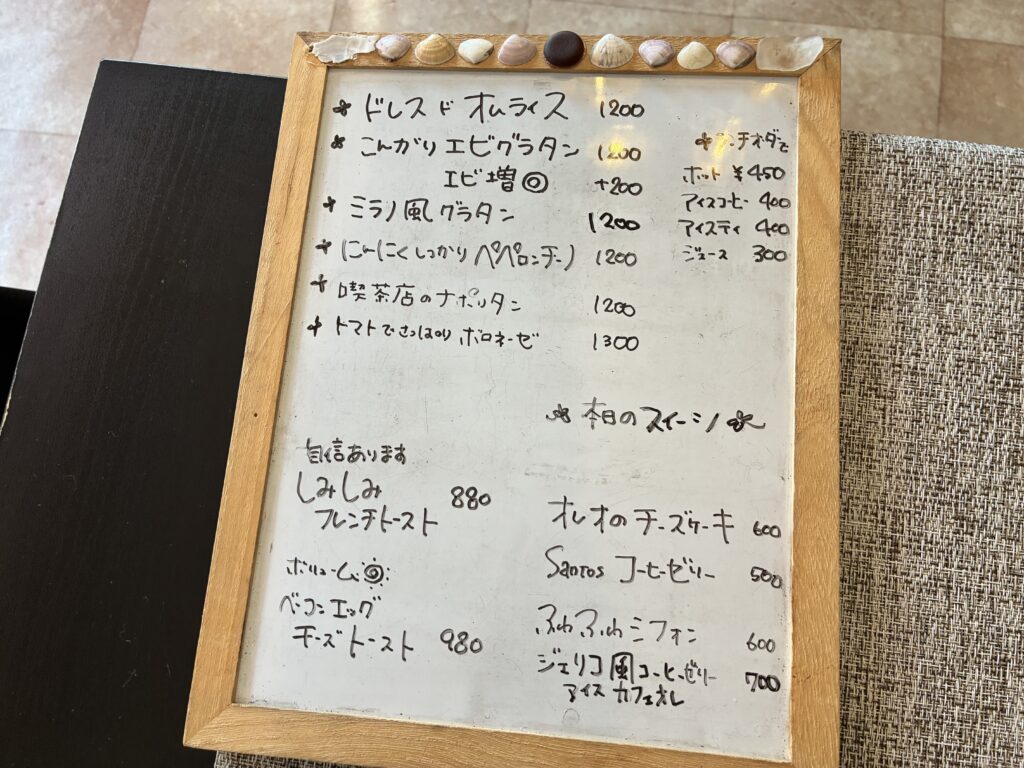 ドレス ド オムライス 1200
こんがり エビグラタン 1200
エビ増◎ +200
ミラノ風グラタン 1200
にんにくしっかり ペペロンチーノ 1200
喫茶店のナポリタン 1200
トマトでさっぱり ボロネーゼ 1300
ンチオーダーで
ホット ¥450
アイスコーヒー 400
アイスティ 400
ジュース 300
本日のスイーツ
自信あります
しみしみ 880
フレンチトースト
ボリューム◎
ベーコンエッグ
チーズトースト 980
オレオのチーズケーキ 600
Santos コーヒーゼリー 500
ふわふわシフォン 600
ジェリコ風コーヒーゼリー 700
アイス カフェオレ